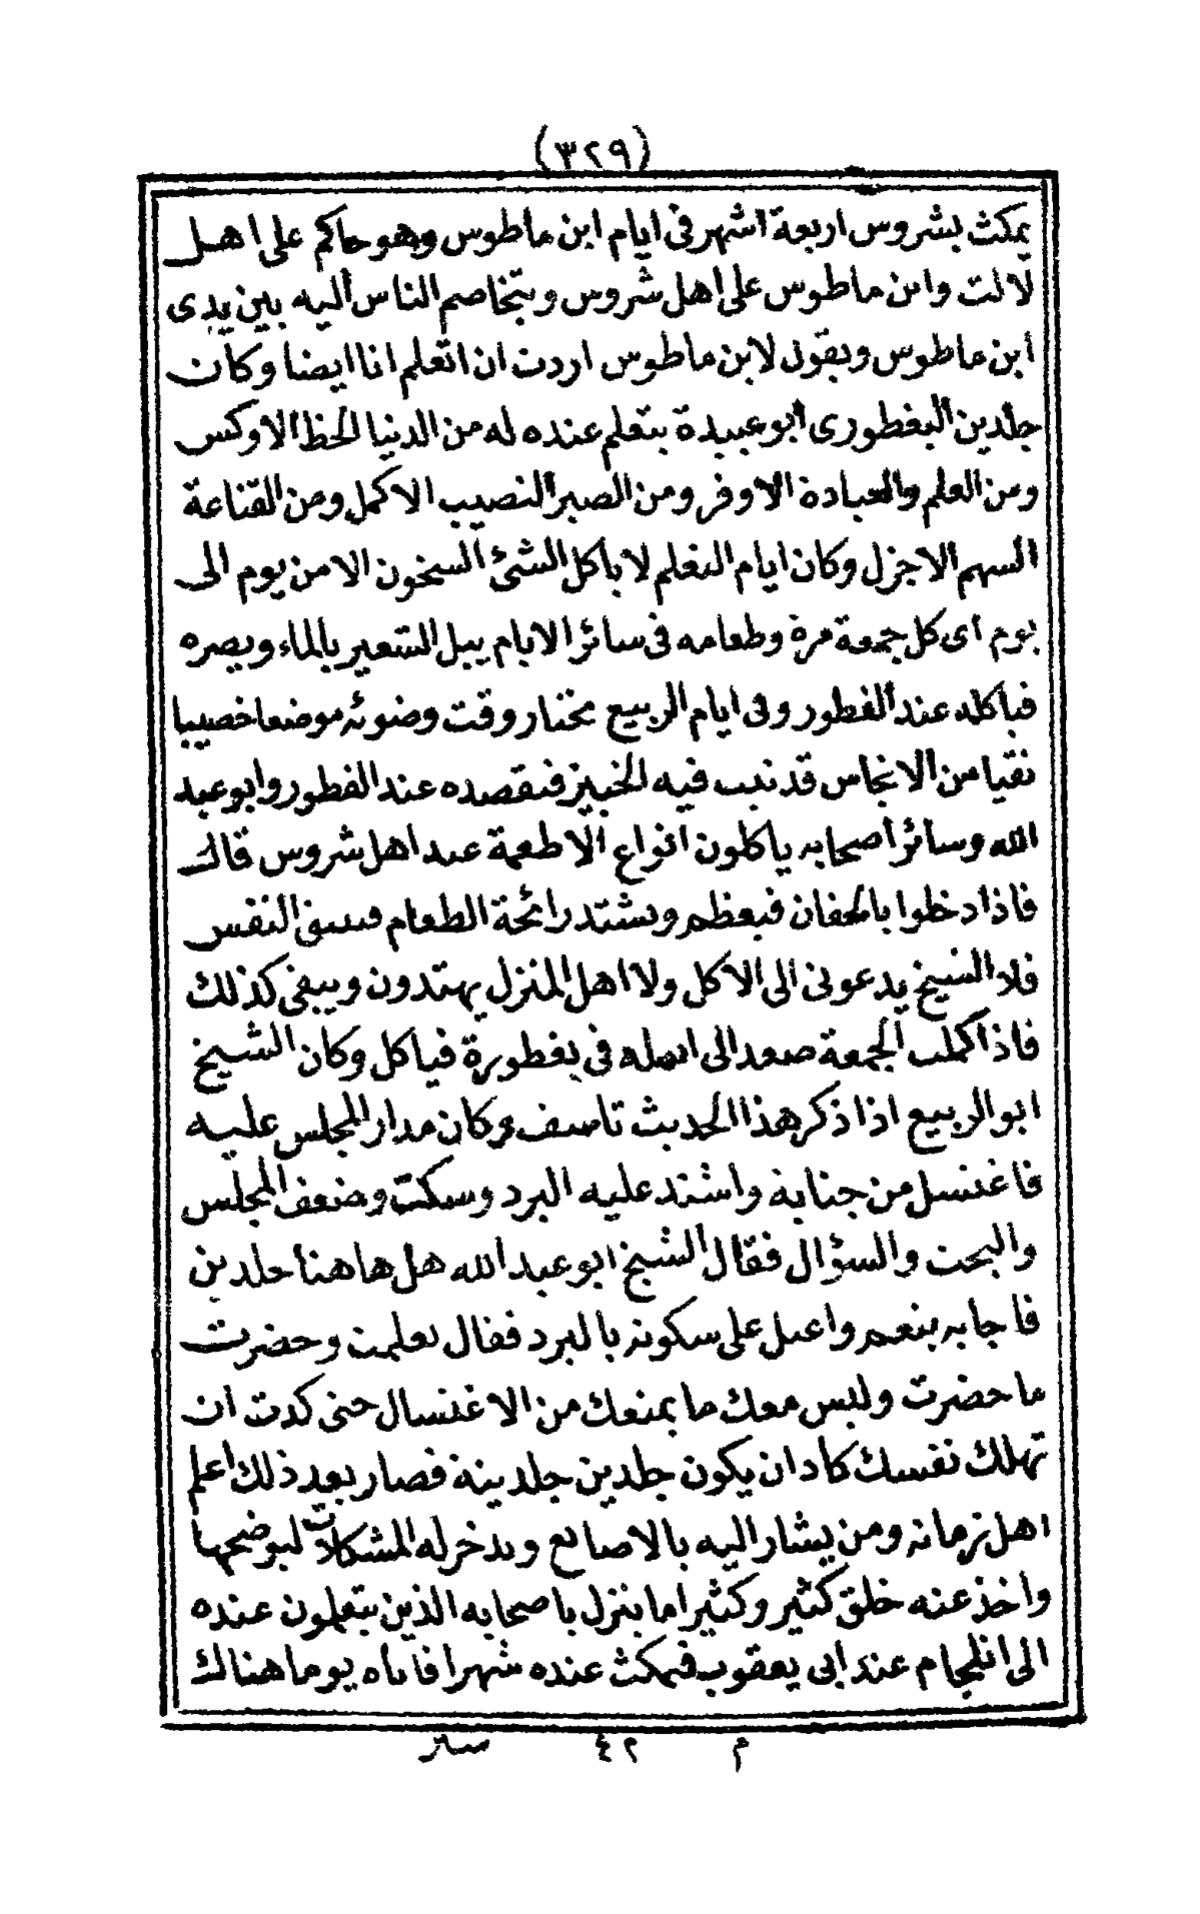 (٣٢٩)
يمكث بشروس اربعة اشهر فى ايام ابن ماطوس وهو حاكم على اهل
لالت وابن ماطوس على اهل شروس ويتخاصم الناس اليه بين يدى
ابن ماطوس ويقول لابن ماطوس اردت ان اتعلم انا ايضا وكان
جلدين البغطورى ابو عبيدة يتعلم عنده له من الدنيا الحظ الاوكس
ومن العلم والعبادة الاوفر ومن الصبر النصيب الاكمل ومن القناعة
السهم الاجزل وكان ايام التعلم لا ياكل الشئ السخون الا من يوم الى
يوم اى كل جمعة مرة وطعامه فى سائر الايام يبل الشعير بالماء ويصره
فياكله عند الفطور وفى ايام الربيع يختار وقت وضوئه موضعا خصيبا
نقيا من الانجاس قد نبت فيه الخبيز فيقصده عند الفطور وابو عبد
الله وسائر اصحابه ياكلون انواع الاطعمة عند اهل شروس قال
فاذا دخلوا بالجفان فيعظم ويشتد رائحة الطعام فتبقى النفس
فلا الشيخ يدعونى الى الاكل ولا اهل المنزل يهتدون ويبقى كذلك
فاذا كملت الجمعة صعد الى اهله فى بغطورة فياكل وكان الشيخ
ابو الربيع اذا ذكر هذا الحديث تاسف وكان مدار المجلس عليه
فاغتسل من جنابة واشتد عليه البرد وسكت وضعف المجلس
والبحث والسؤال فقال الشيخ ابو عبد الله هل هاهنا جلدين
فاجابه بنعم واعتل على سكوته بالبرد فقال تعلمت وحضرت
ما حضرت وليس معك ما يمنعك من الاغتسال حتى كدت ان
تهلك نفسك كاد ان يكون جلدين جلدينة فصار بعد ذلك اعلم
اهل زمانه ومن يشار اليه بالاصابع ويدخر له المشكلات ليوضحها
واخذ عنه خلق كثير وكثيرا ما ينزل باصحابه الذين يتعلمون عنده
الى اتلجام عند ابى يعقوب فيمكث عنده شهرا فاتاه يوما هناك
م ٤٢ سير